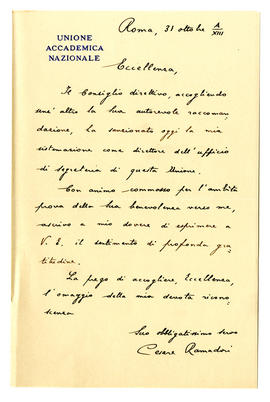 UNIONE
ACCADEMICA
NAZIONALE
Roma, 31 ottobre A
XIII
Eccellenza,
Il Consiglio direttivo, accogliendo
senz'altro la Sua autorevole raccoman
dazione, ha sanzionato oggi la mia
sistemazione come direttore dell'ufficio
di segreteria di questa Unione.
Con animo commosso per l'ambita
prova della Sua benevolenza verso me,
ascrivo a mio dovere di esprimere a
V. E. il sentimento di profonda gra
titudine.
La prego di accogliere, Eccellenza,
l'omaggio della mia devota ricono
scenza
Suo obbligatissimo servo
Cesare Ramadori